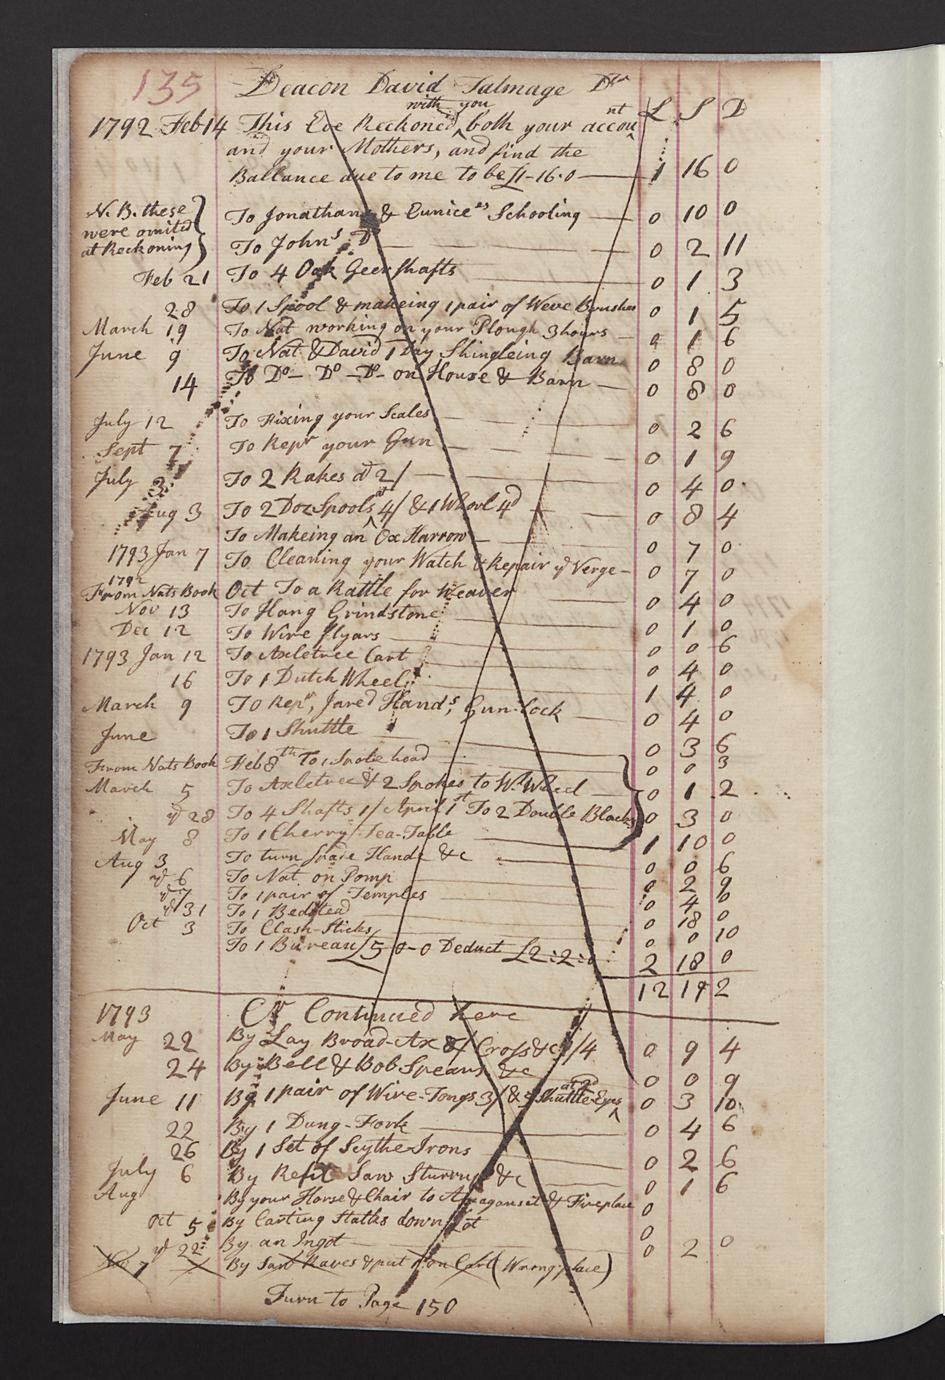 135 Deacon David Talmage Dr
with you nt £ S D
1792 Feb 14 This Eve Reckoned both your accou
and your Mothers, and find the
Ballance due to me to be £1-16-0 1 16 0
N.B. these To Jonathans & Eunice's Schooling 0 10 0
were omited
at Reckoning To Johns Do 0 2 11
Feb 21 To 4 Oak Geer shafts 0 1 3
28 To 1 Spool & makeing 1 pair of Weve Brushes 0 1 5
March 19 To Nat working on your Plough 3 hours 0 1 6
June 9 To Nat & David 1 Day Shingleing Barn 0 8 0
14 To Do - Do - Do - on House & Barn 0 8 0
July 12 To Fixing your Scales 0 2 6
Sept 7 To Repr your Gun 0 1 9
July 3 To 2 Rakes at 2/ 0 4 0
Aug 3 To 2 Doz Spools at 4/ & 1 Whorl 4d 0 8 4
To Makeing an Ox Harrow 0 7 0
1793 Jan 7 To Cleaning your Watch & Repair ye Verge 0 7 0
1792
From Nats Book Oct To a Rattle for Weaver 0 4 0
Nov 13 To Hang Grindstone 0 1 0
Dec 12 To Wire flyars 0 0 6
1793 Jan 12 To Axletree Cart 0 4 0
16 To 1 Dutch Wheel 1 4 0
March 9 To Repr, Jared Hand's Gun-Lock 0 4 0
June To 1 Shuttle 0 3 6
From Nats Book Feb 8th To 1 Spole head 0 0 3
March 5 To Axletree & 2 Spokes to W. Wheel 0 1 2
ye 28 To 4 Shafts 1/ April 1st To 2 Double Blocks 0 3 0
May 8 To 1 Cherry Tea-Table 1 10 0
Aug 3 To turn Spade Handle &c 0 0 6
ye 6 To Nat on Pomp 0 2 9
ye 7 To 1 pair of Temples 0 4 0
ye 31 To 1 Bedsted 0 18 0
Oct 3 To Clash-Sticks 0 0 10
To 1 Bureau £5-0-0 Deduct £2:2:0 2 18 0
12 19 2
1793 Cr Continued here
May 22 By Lay Broad-Ax 8/ Cross &c 1/4 0 9 4
24 By Bell & Bob Spears &c 0 0 9
June 11 By 1 pair of Wire-Tongs 3/ & 5 Shuttle-Eyes at 2d 0 3 10
22 By 1 Dung-Fork 0 4 6
26 By 1 Set of Scythe Irons 0 2 6
July 6 By Refit Saw Sturrup &c 0 1 6
Aug By your Horse & Chair to Amagansett & Fireplace 0
Oct 5 By Carting Stalks down Lot 0
ye 22 By an Ingot 0 2 0
Nov 7 By Raves & put on Cart (Wrong place)
Turn to Page 150